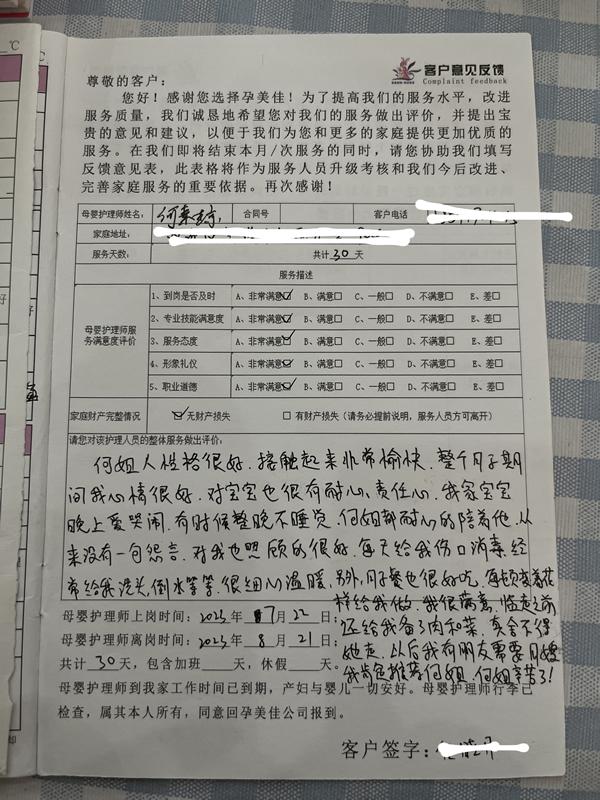 客户意见反馈
Complaint feedback
尊敬的客户：
您好！感谢您选择孕美佳！为了提高我们的服务水平，改进
服务质量，我们诚恳地希望您对我们的服务做出评价，并提出宝
贵的意见和建议，以便于我们为您和更多的家庭提供更加优质的
服务。在我们即将结束本月/次服务的同时，请您协助我们填写
反馈意见表，此表格将作为服务人员升级考核和我们今后改进、
完善家庭服务的重要依据。再次感谢！
母婴护理师姓名： 何 合同号 客户电话
家庭地址：
服务天数： 共计30天
服务描述
母婴护理师服务满意度评价
1、到岗是否及时 A、非常满意☑ B、满意□ C、一般□ D、不满意□ E、差□
2、专业技能满意度 A、非常满意☑ B、满意□ C、一般□ D、不满意□ E、差□
3、服务态度 A、非常满意☑ B、满意□ C、一般□ D、不满意□ E、差□
4、形象礼仪 A、非常满意☑ B、满意□ C、一般□ D、不满意□ E、差□
5、职业道德 A、非常满意☑ B、满意□ C、一般□ D、不满意□ E、差□
家庭财产完整情况 ☑无财产损失 □有财产损失（请务必提前说明，服务人员方可离开）
请您对该护理人员的整体服务做出评价：
何姐人性格很好．接触起来非常愉快．整个月子期
间我心情很好．对宝宝也很有耐心、责任心．我家宝宝
晚上爱哭闹．有时候整晚不睡觉．何姐都耐心的陪着他．从
来没有一句怨言．对我也照顾的很好．每天给我伤口消毒．经
常给我洗头，倒水等等．很细心温暖．另外，月子餐也很好吃．每顿变着花
样给我做．我很满意．临走之前
还给我备了肉和菜．真舍不得
她走．以后我有朋友需要月嫂
我肯定推荐何姐．何姐辛苦了！
母婴护理师上岗时间：2023年7月22日；
母婴护理师离岗时间：2023年8月21日；
共计30天，包含加班 天，休假 天。
母婴护理师到我家工作时间已到期，产妇与婴儿一切安好。母婴护理师行李已
检查，属其本人所有，同意回孕美佳公司报到。
客户签字：